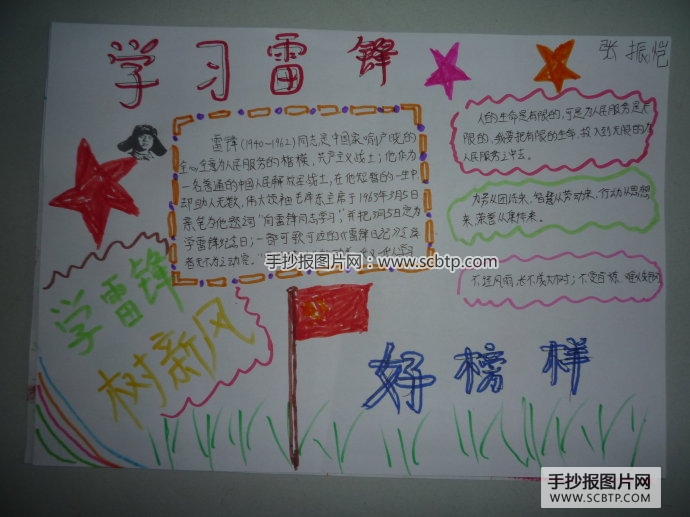 学习雷锋
张振恺
雷锋(1940-1962)同志是中国家喻户晓的
全心全意为人民服务的楷模,共产主义战士;他作为
一名普通的中国人民解放军战士,在他短暂的一生中
却助人无数,伟大领袖毛泽东主席于1963年3月5日
亲笔为他题词"向雷锋同志学习",并把3月5日定为
学雷锋纪念日;一部可歌可泣的《雷锋日记》令读
者无不为之动容。"
人的生命是有限的,可是为人民服务是无
限的,我要把有限的生命,投入到无限的为
人民服务之中去。
力量从团结来,智慧从劳动来,行动从思想
来,荣誉从集体来。
不经风雨,长不成大树;不受百炼,难以成钢
学雷锋
树新风
好榜样
手抄报图片网:www.scbtp.com
手抄报图片网
WWW.SCBTP.COM